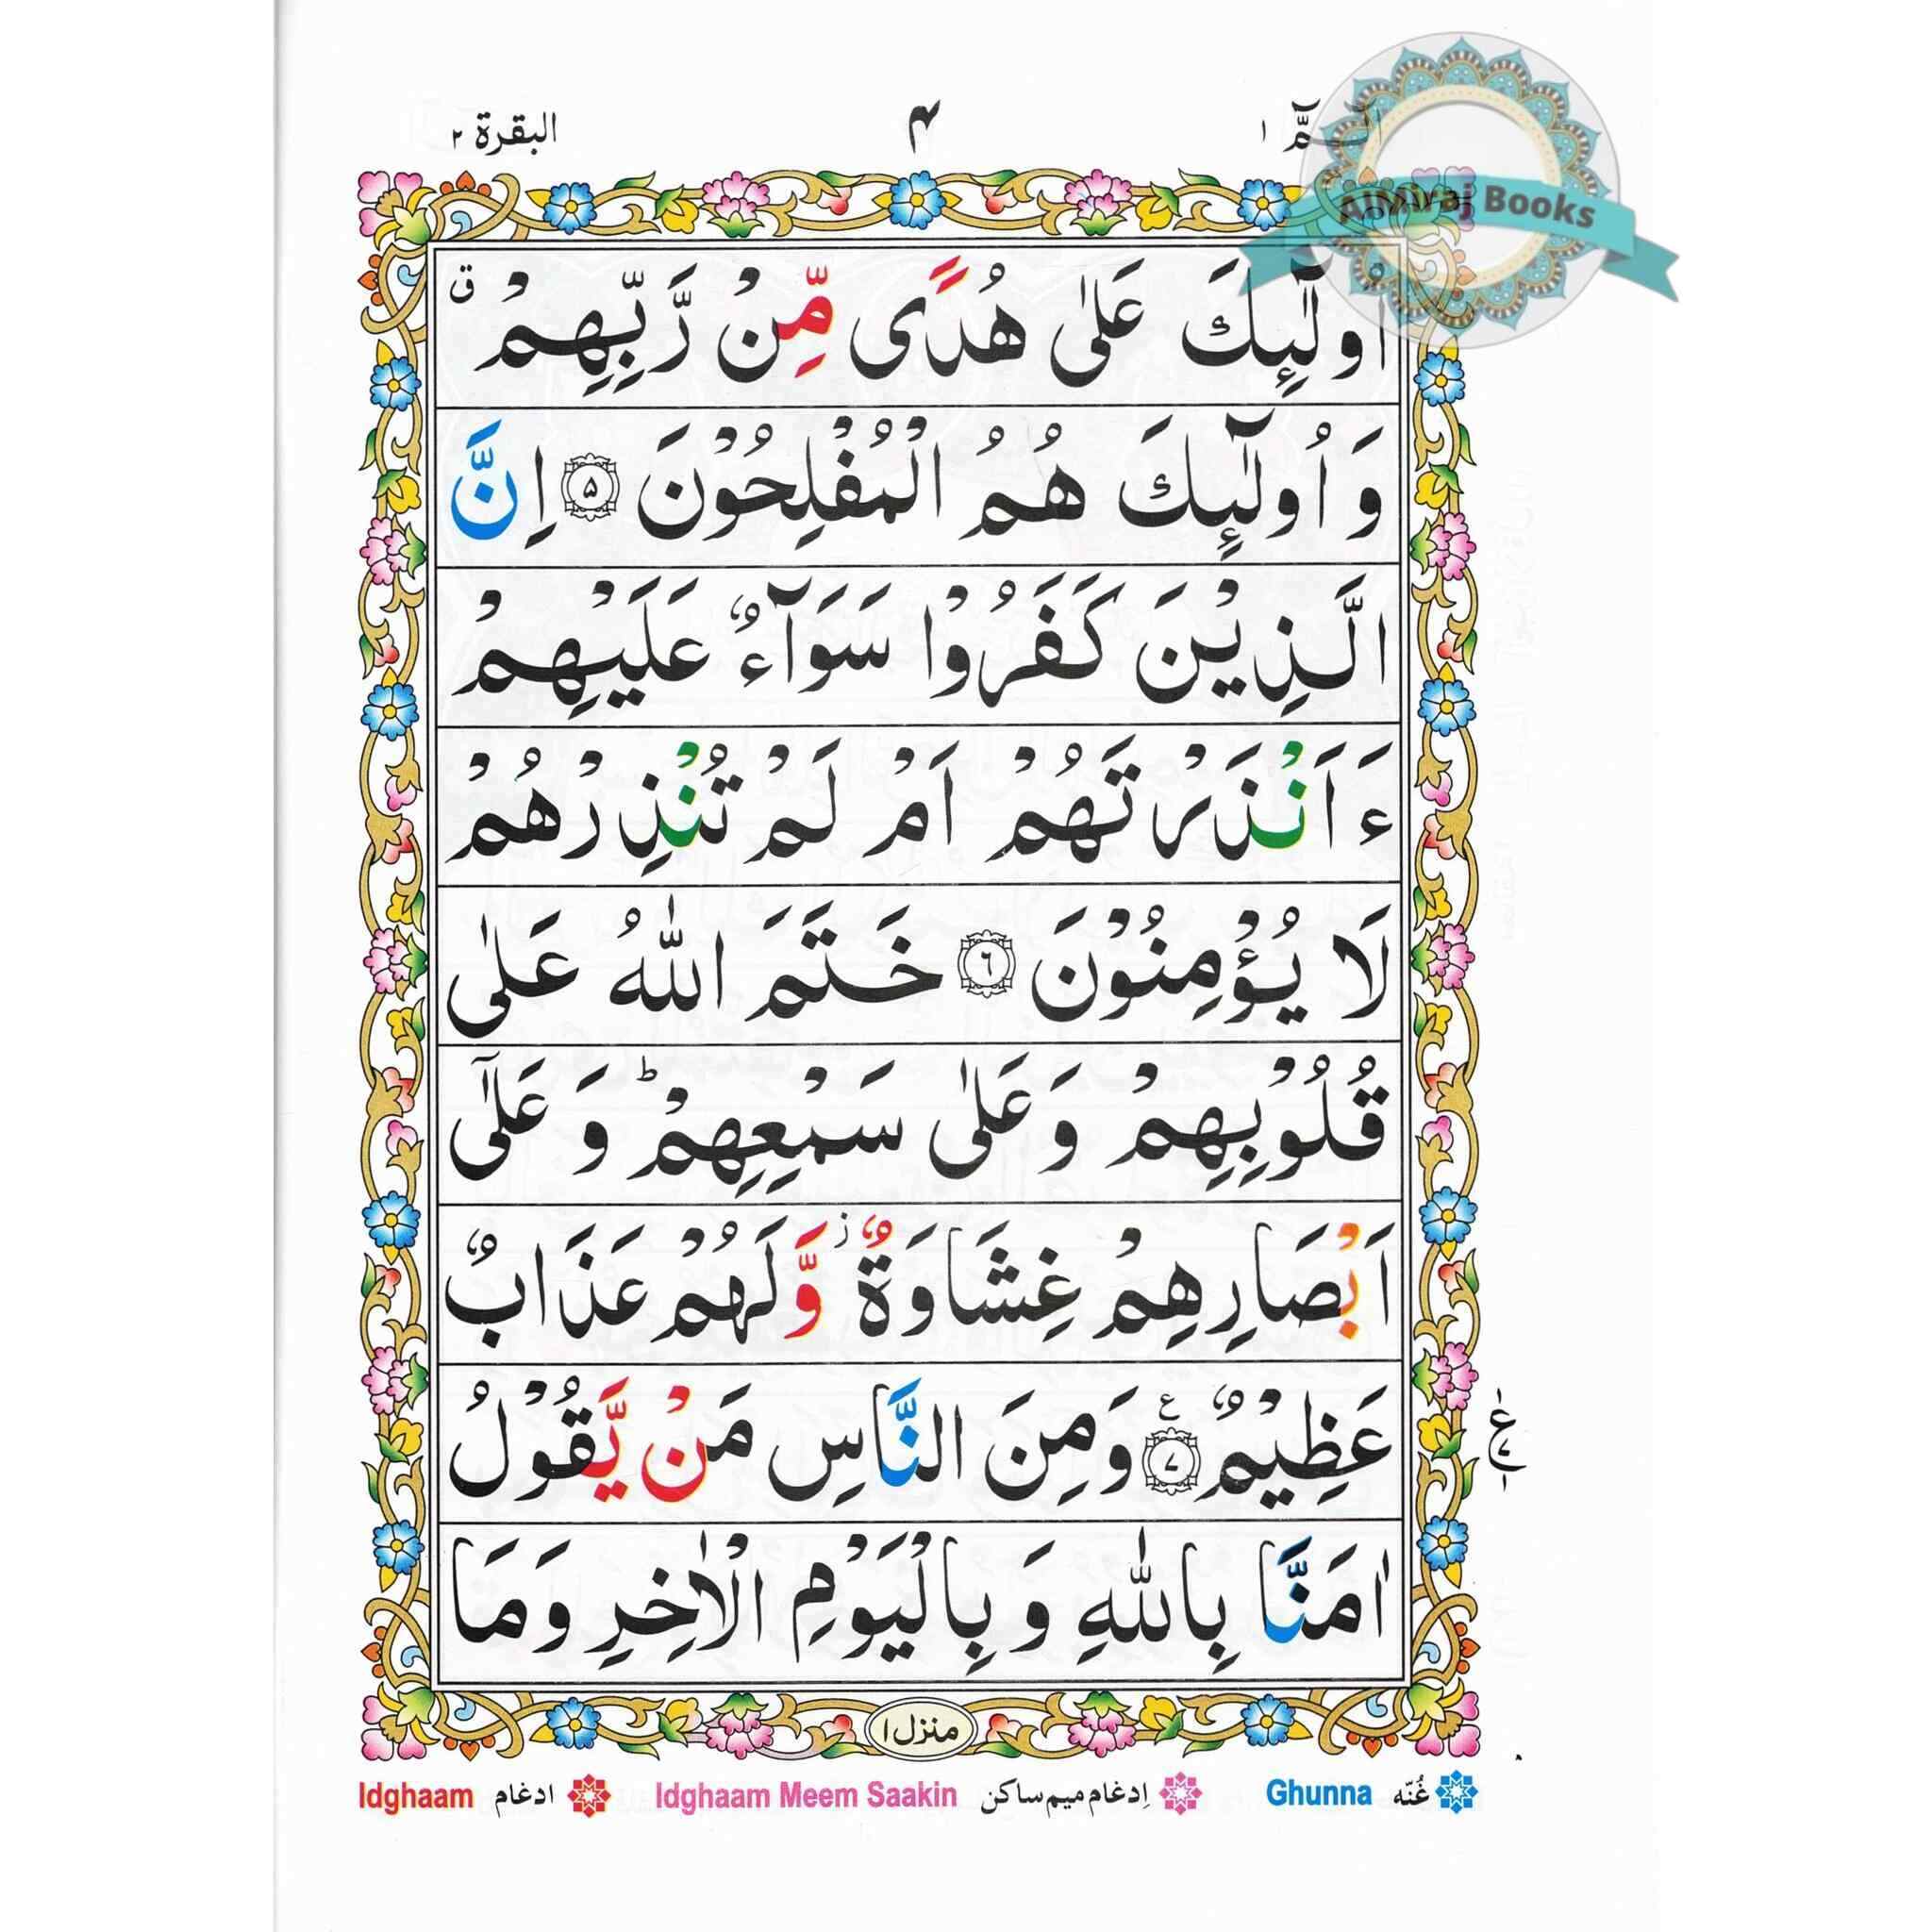 الٓمّٓ ۱
۴
البقرة ۲
AlMiraj Books
اُولٰٓئِكَ عَلٰى هُدًى مِّنْ رَّبِّهِمْ ۗ
وَ اُولٰٓئِكَ هُمُ الْمُفْلِحُوْنَ ۵ اِنَّ
الَّذِيْنَ كَفَرُوْا سَوَآءٌ عَلَيْهِمْ
ءَ اَنْذَرْتَهُمْ اَمْ لَمْ تُنْذِرْهُمْ
لَا يُؤْمِنُوْنَ ۶ خَتَمَ اللّٰهُ عَلٰى
قُلُوْبِهِمْ وَ عَلٰى سَمْعِهِمْ ؕ وَ عَلٰٓى
اَبْصَارِهِمْ غِشَاوَةٌ ز وَّ لَهُمْ عَذَابٌ
عَظِيْمٌ ۷ ع وَمِنَ النَّاسِ مَنْ يَّقُوْلُ
اٰمَنَّا بِاللّٰهِ وَ بِالْيَوْمِ الْاٰخِرِ وَمَا
منزل ۱
غُنّه Ghunna
اِدغام ميم ساكن Idghaam Meem Saakin
ادغام Idghaam